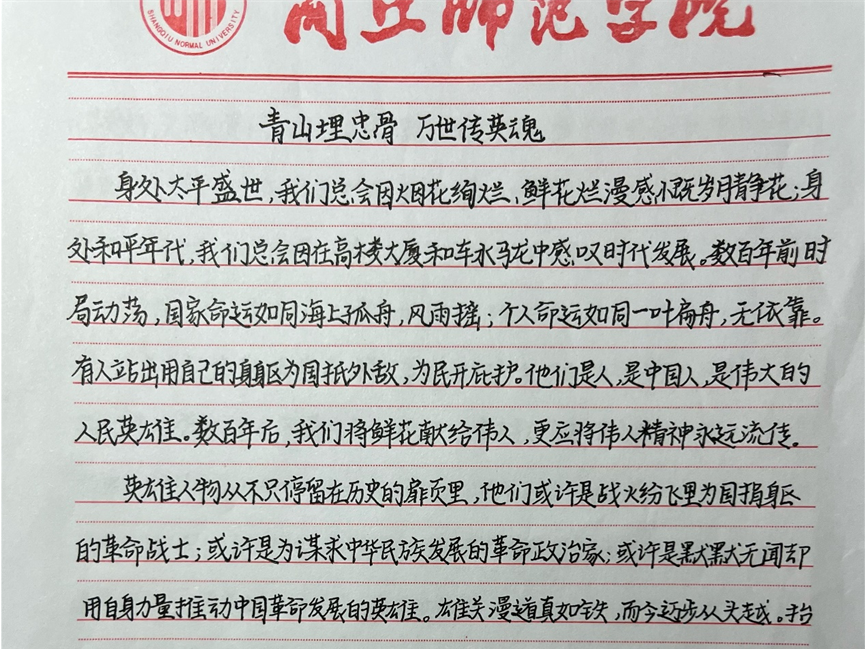 商丘师范学院
SHANGQIU NORMAL UNIVERSITY
青山埋忠骨 万世传英魂
身处太平盛世，我们总会因烟花绚烂、鲜花烂漫感慨岁月静花；身
处和平年代，我们总会因在高楼大厦和车水马龙中感叹时代发展。数百年前时
局动荡，国家命运如同海上孤舟，风雨摇；个人命运如同一叶扁舟，无依靠。
有人站出用自己的身躯为国抵外敌，为民开庇护。他们是人，是中国人，是伟大的
人民英雄。数百年后，我们将鲜花献给伟人，更应将伟人精神永远流传。
英雄人物从不只停留在历史的扉页里，他们或许是战火纷飞里为国捐身区
的革命战士；或许是为谋求中华民族发展的革命政治家；或许是默默无闻却
用自身力量推动中国革命发展的英雄。雄关漫道真如铁，而今迈步从头越。抬